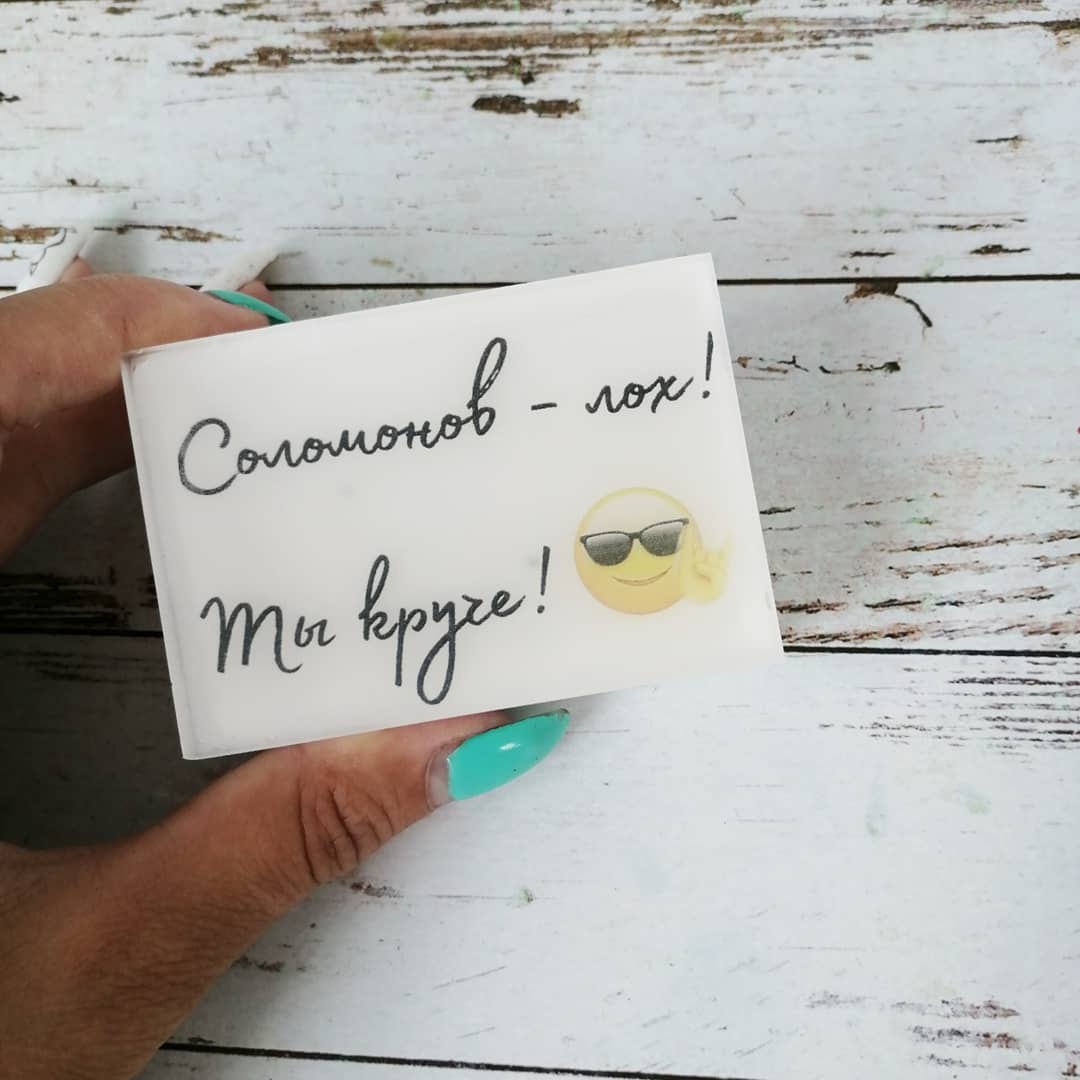 Соломонов - лох!
Ты круче!